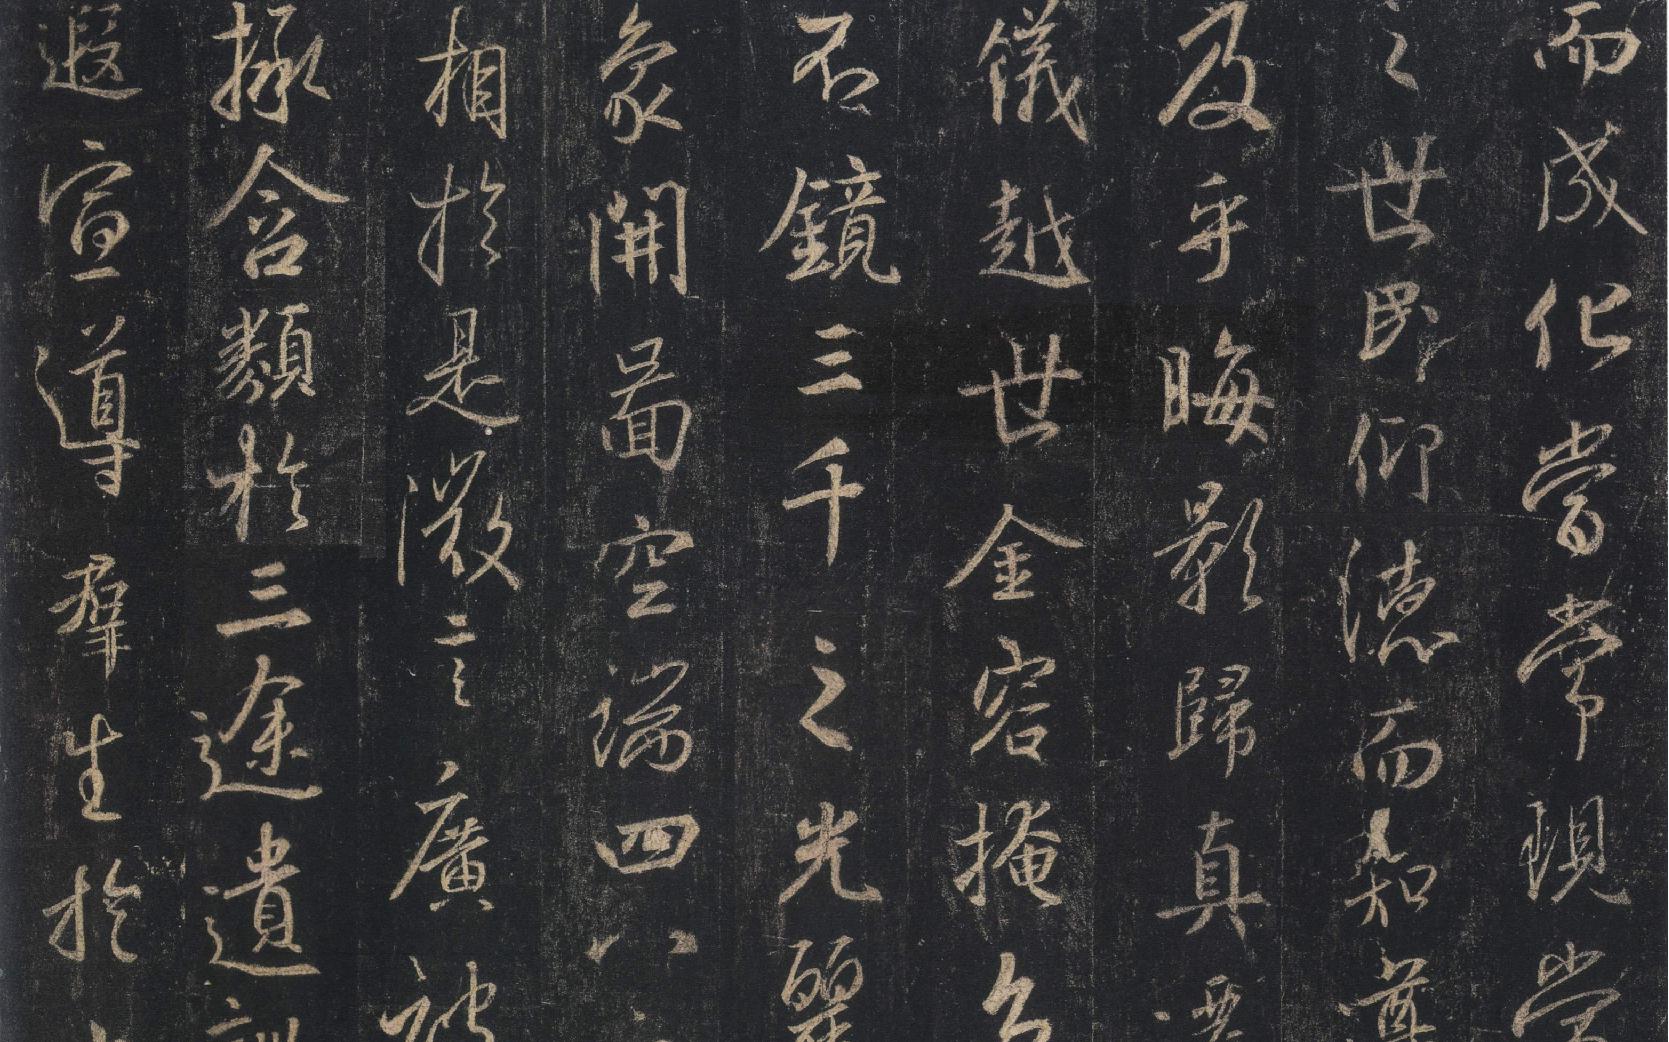 而成化當常現常
之世民仰德而知遵
及乎晦影歸真遷
儀越世金容掩色
不鏡三千之光麗
象開圖空端四八
相於是微言廣被
拯含類於三途遺訓
遐宣導羣生於